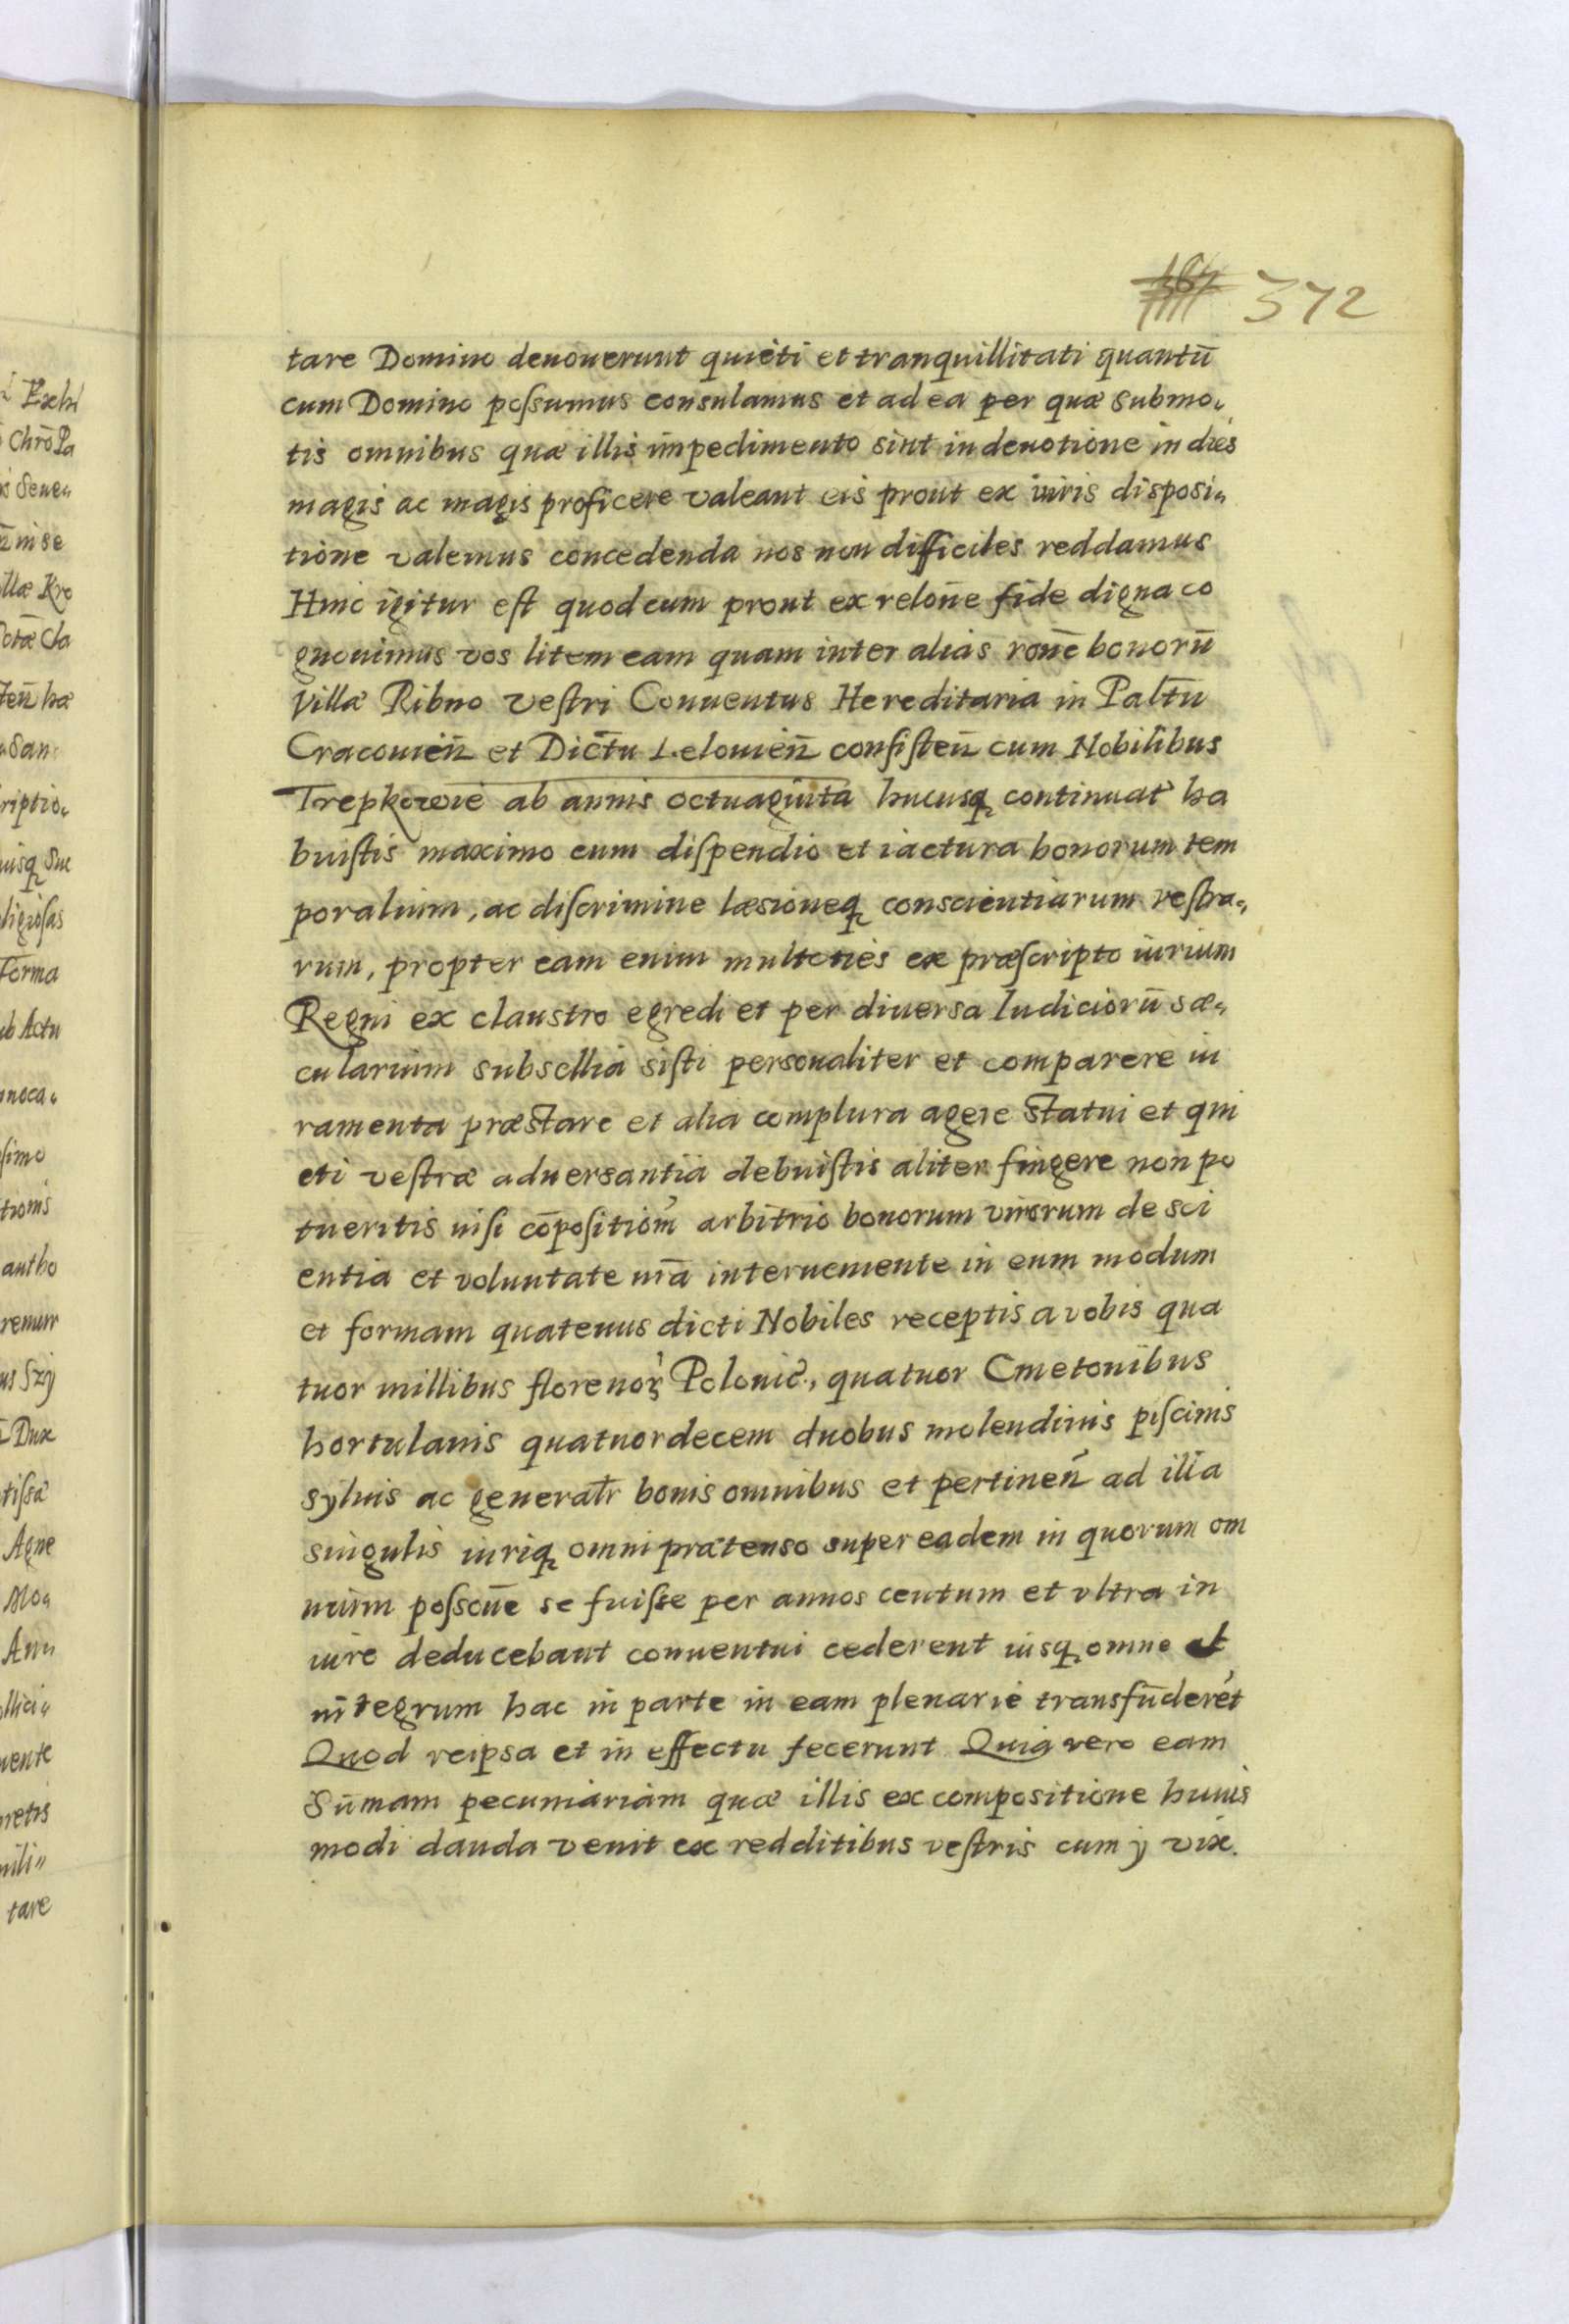 372
tare Domino deuouerunt quieti et tranquillitati quantū
cum Domino poſsumus consulamus et ad ea per quæ submo„
tis omnibus quæ illis impedimento sint in deuotione in dies
magis ac magis proficere valeant eis prout ex iuris disposi„
tione valemus concedenda nos non difficiles reddamus
Hinc igitur eſt quod cum prout ex relōne fide digna co
gnouimus vos litem eam quam inter alias rōne bonorū
Villæ Ribno veſtri Conuentus Hereditaria in Paltū
Cracouień et Dictu Lelouień conſiſteñ cum Nobilibus
Trepkowie ab annis octuaginta hucusq continuat ha
buiſtis maximo cum diſpendio et iactura bonorum tem
poralium, ac diſcrimine læsioneq conscientiarum veſtra„
rum, propter eam enim multoties ex præſcripto iurium
Regni ex claustro egredi et per diuersa Iudiciorū sæ„
cularium subsellia siſti personaliter et comparere iu
ramenta præstare et alia complura agere statui et qui
eti veſtræ aduersantia debuiſtis aliter fingere non po
tueritis niſi cōpoſitiom arbitrio bonorum virorum de sci
entia et voluntate nrā interueniente in eum modum
et formam quatenus dicti Nobiles receptis a vobis qua
tuor millibus florenoꝝ Polonic., quatuor Cmetonibus
hortulanis quatuordecem duobus molendinis piſcinis
syluis ac generalr bonis omnibus et pertineñ ad illa
singulis iuriq omni prætenso super eadem in quorum om
nium poſsoūe se fuiſse per annos centum et vltra in
iure deducebant conuentui cederent iusq omne et
integrum hac in parte in eam plenarie transfūderet
Quod reipsa et in effectu fecerunt Quia vero eam
Sūmam pecuniariam quæ illis ex compositione huius
modi danda venit ex redditibus veſtris cum ij vix.